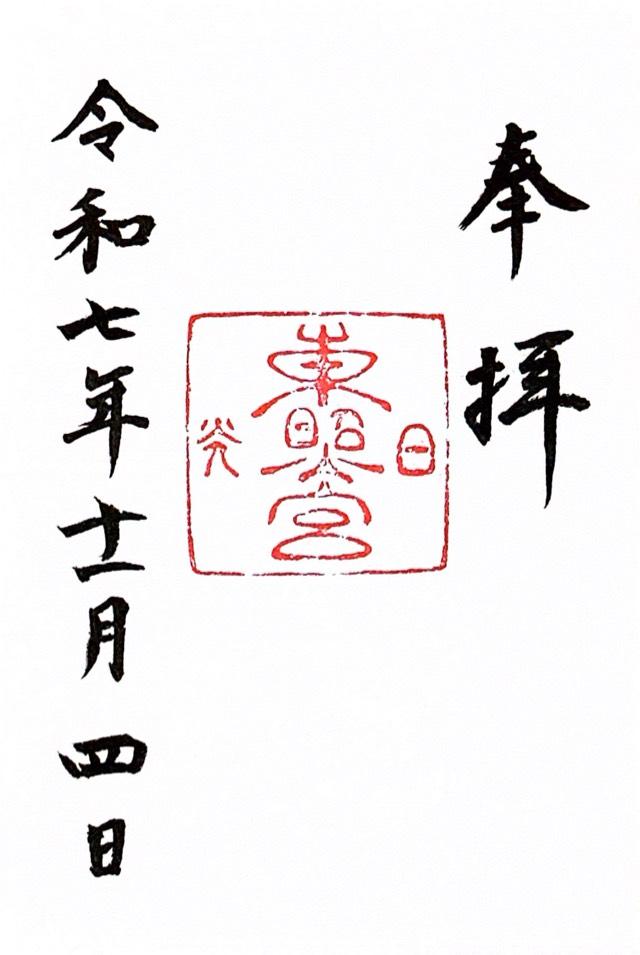 奉拝
日
東照宮
光
令和七年十一月四日